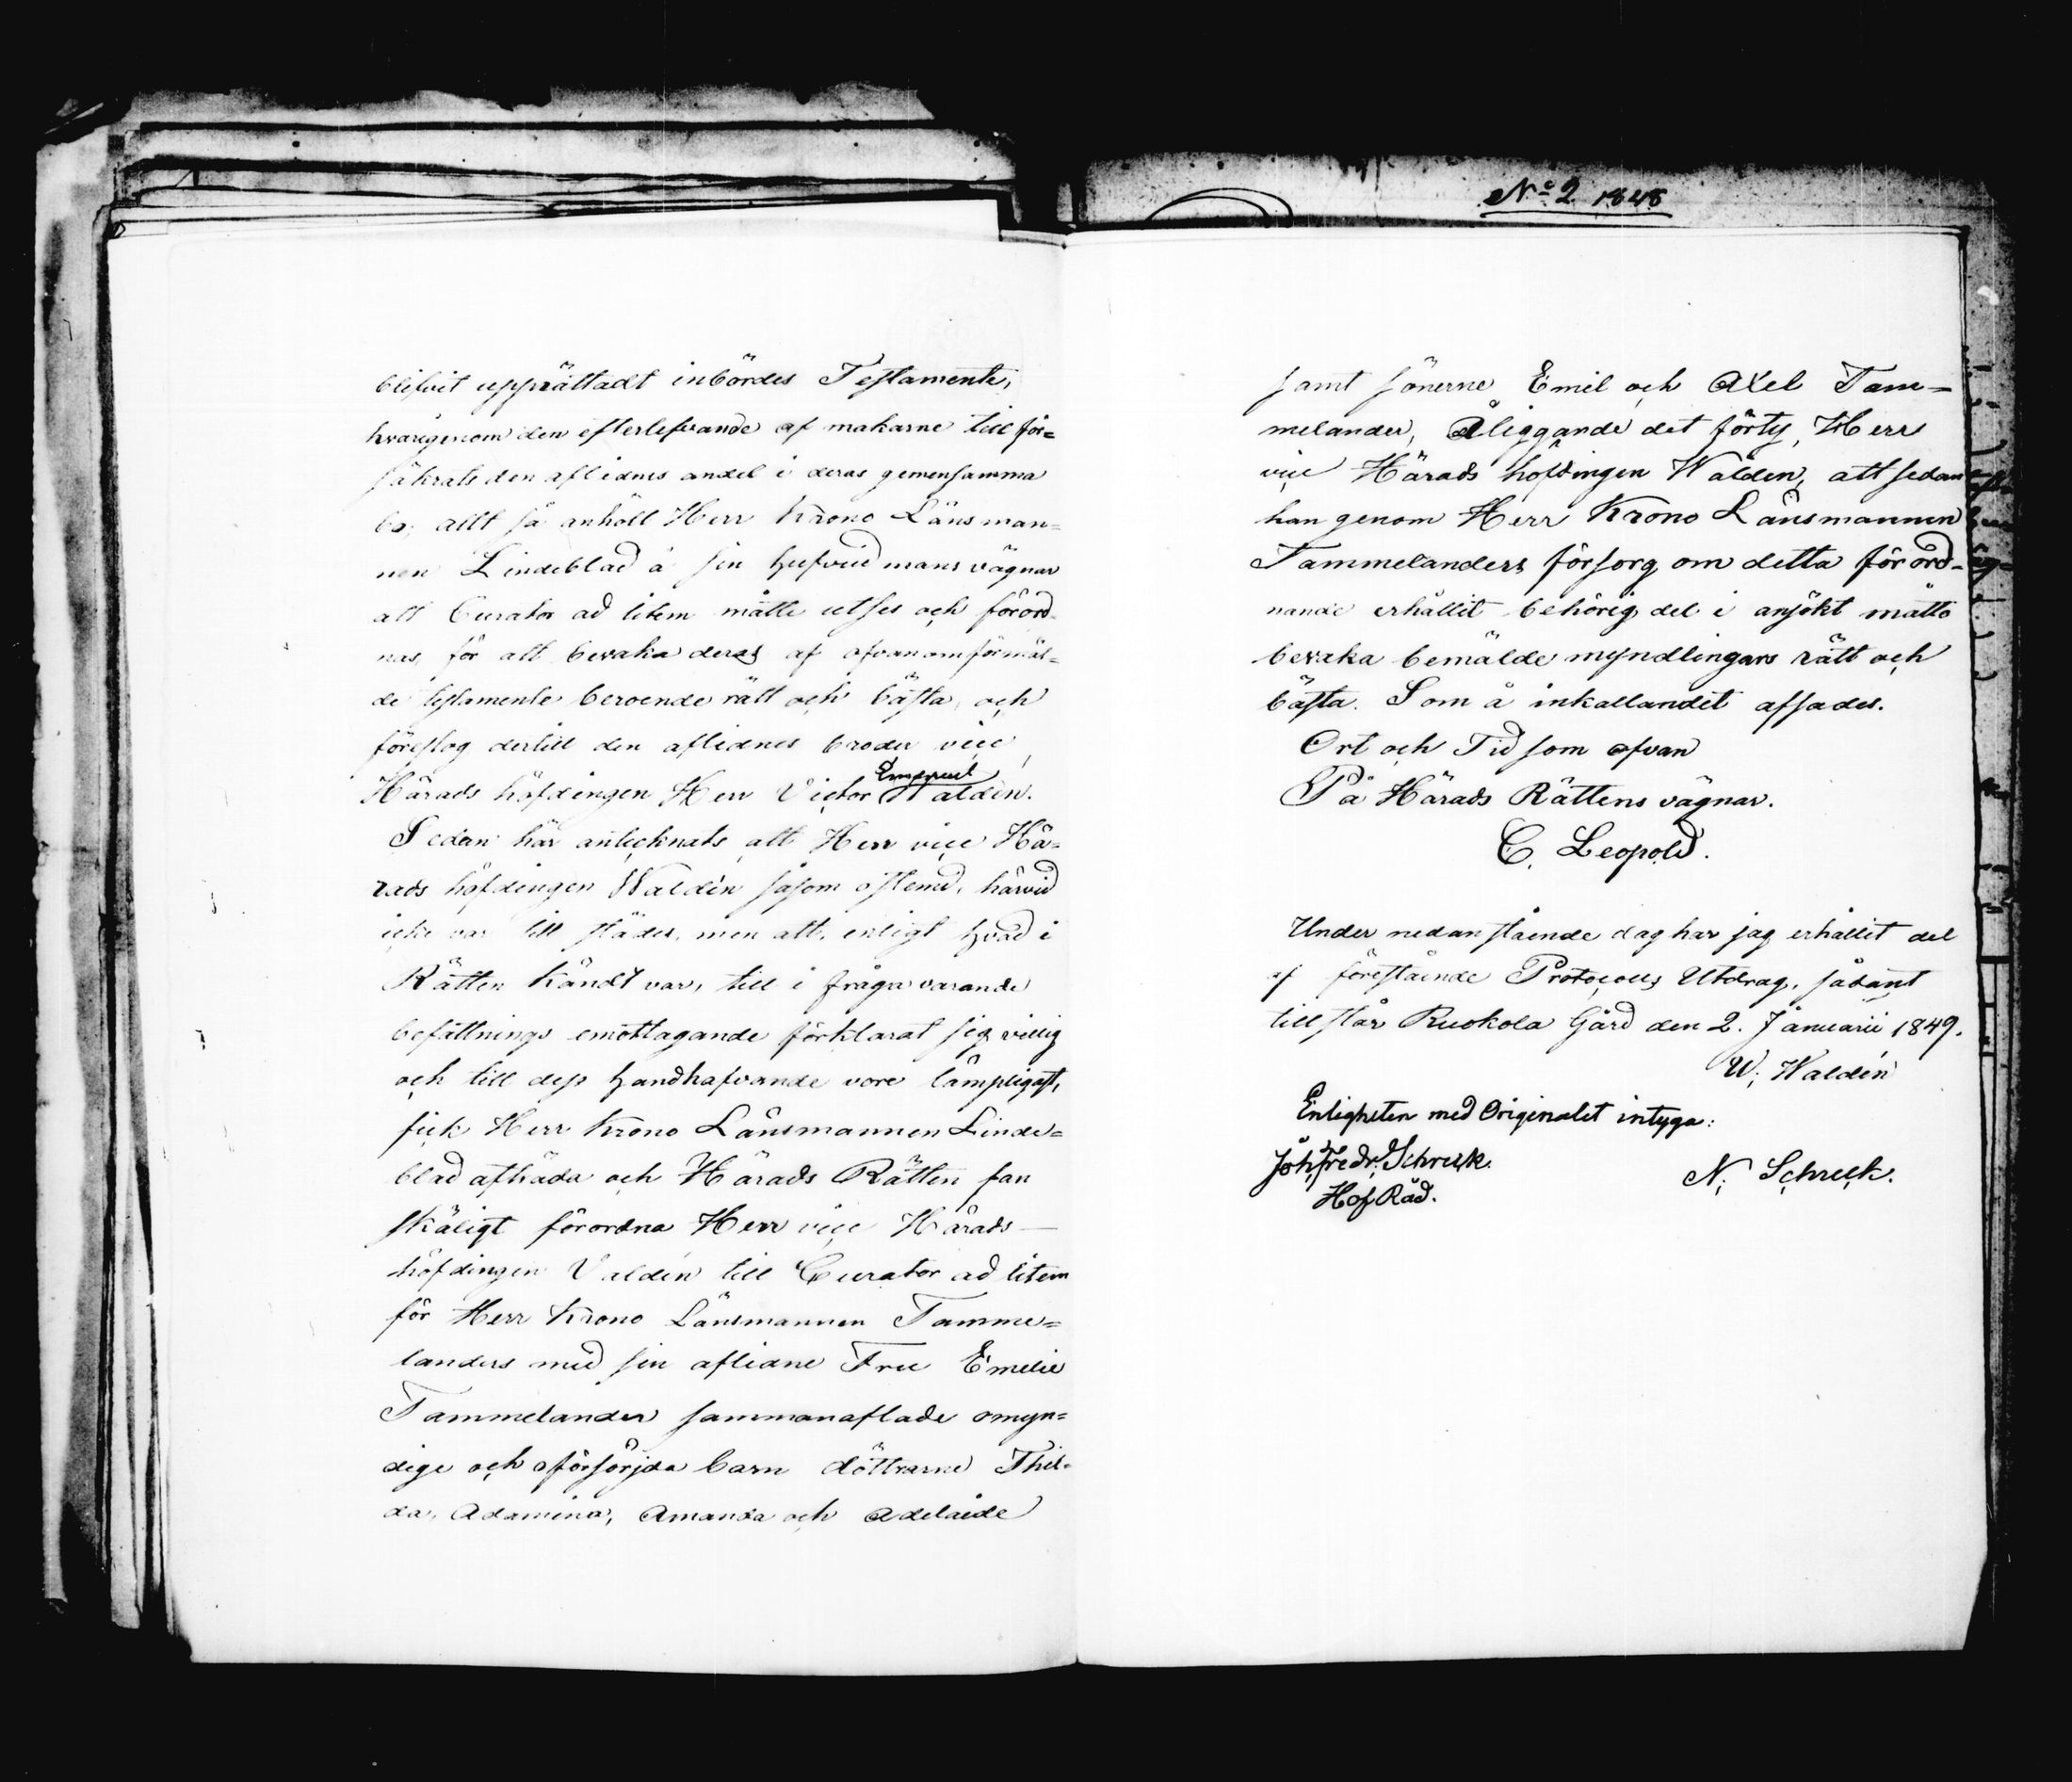 blifvit upprättadt inbördes Testamente,
hvarigenom den efterlefvande af makarne till för=
säkrats den aflidnes andel i deras gemensamma
bo; allt så anhöll Herr Krono Länsman=
nen Lindeblad å sin hufvudmans vägnar
att Curator ad litem måtte utses och förord-
nas, för att bevaka deras af ofvanomförmäl-
de testamente beroende rätt och bästa, och
föreslog dertill den aflidnes broder vice
Härads höfdingen Herr Victor Emanuel Waldén.
Sedan här antecknats att Herr vice Hä=
rads höfdingen Waldén såsom ostemd, härvid
icke var till städes, men att, enligt hvad i
Rätten kändt var, till i fråga varande
befattnings emottagande förklarat sig villig
och till dess handhafvande vore lämpligast,
fick Herr Krono Länsmannen Linde=
blad afträda och Härads Rätten fan
skäligt förordna Herr vice Härads
höfdingen Valdén till Curator ad litem
för Herr Krono Länsmannen Tamme=
landers med sin aflidne Fru Emelie
Tammelander sammanaflade omyn=
dige och oförsörjda barn döttrarne Thil-
da, Adamina, Amanda och Adelaide
No 2 1848
samt sönerne Emil och Axel Tam=
melander, Åliggande det förty, Herr
vice Härads höfdingen Waldén, att sedan
han genom Herr Krono Länsmannen
Tammelanders försorg om detta förord-
nande erhållit behörig del i ansökt måtto
bevaka bemälde myndlingars rätt och
bästa. Som å inkallandet afsades.
Ort och Tid som ofvan
På Härads Rättens vägnar.
C. Leopold.
Under nedanstående dag har jag erhållit del
af förestående Protocolls Utdrag, sådant
till står Ruokola Gård den 2. Januarii 1849.
W. Waldén
Enligheten med Originalet intyga:
Joh. Fredr. Schreck.
N. Schreck.
Hof Råd.